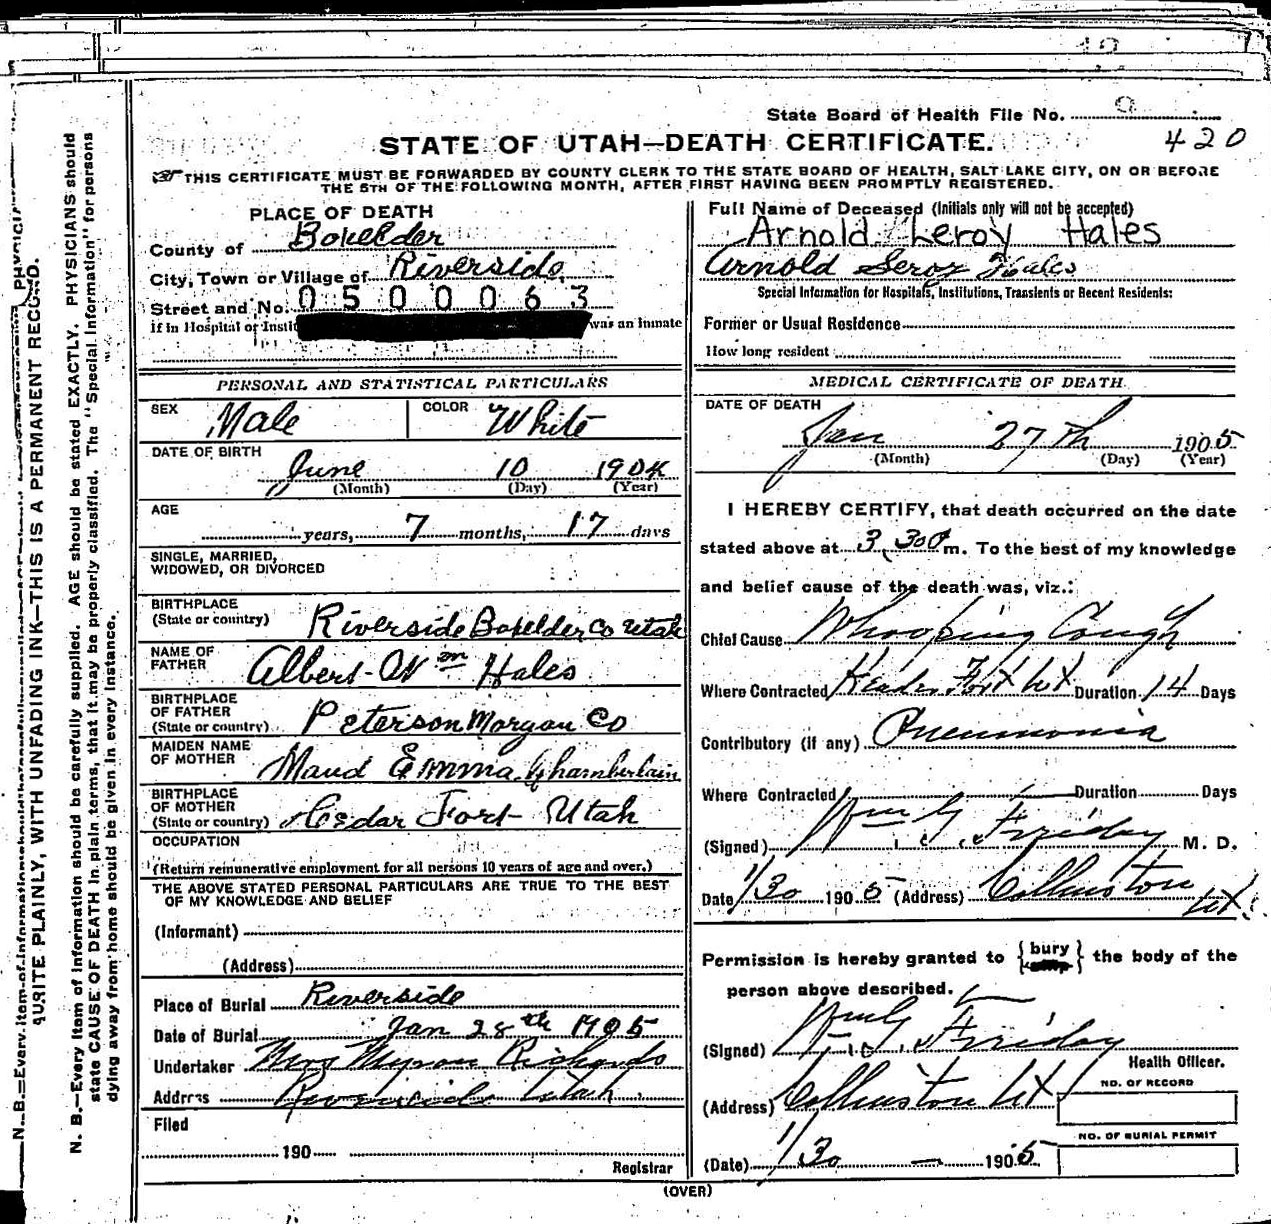 State Board of Health File No.
420
STATE OF UTAH—DEATH CERTIFICATE.
THIS CERTIFICATE MUST BE FORWARDED BY COUNTY CLERK TO THE STATE BOARD OF HEALTH, SALT LAKE CITY, ON OR BEFORE
THE 5TH OF THE FOLLOWING MONTH, AFTER FIRST HAVING BEEN PROMPTLY REGISTERED.
PLACE OF DEATH
County of Boxelder
City, Town or Village of Riverside
Street and No. 0500063
if in Hospital or Insti was an inmate
PERSONAL AND STATISTICAL PARTICULARS
SEX Male COLOR White
DATE OF BIRTH
June 10 1904
(Month) (Day) (Year)
AGE
years, 7 months, 17 days
SINGLE, MARRIED,
WIDOWED, OR DIVORCED
BIRTHPLACE
(State or country) Riverside Boxelder Co Utah
NAME OF
FATHER Albert Wm Hales
BIRTHPLACE
OF FATHER
(State or country) Peterson Morgan Co
MAIDEN NAME
OF MOTHER Maud Emma Chamberlain
BIRTHPLACE
OF MOTHER
(State or country) Cedar Fort Utah
OCCUPATION
(Return remunerative employment for all persons 10 years of age and over.)
THE ABOVE STATED PERSONAL PARTICULARS ARE TRUE TO THE BEST
OF MY KNOWLEDGE AND BELIEF
(Informant)
(Address)
Place of Burial Riverside
Date of Burial Jan 28th 1905
Undertaker Mrs Myron Richards
Address Riverside Utah
Filed
190
Registrar
Full Name of Deceased (Initials only will not be accepted)
Arnold Leroy Hales
Arnold Leroy Hales
Special Information for Hospitals, Institutions, Transients or Recent Residents:
Former or Usual Residence
How long resident
MEDICAL CERTIFICATE OF DEATH
DATE OF DEATH
Jan 27th 1905
(Month) (Day) (Year)
I HEREBY CERTIFY, that death occurred on the date
stated above at 3.30 P m. To the best of my knowledge
and belief cause of the death was, viz.:
Chief Cause Whooping Cough
Where Contracted Fort Ut Duration 14 Days
Contributory (if any) Pneumonia
Where Contracted Duration Days
(Signed) Friday M. D.
Date 1/30 1905 (Address) Collinston
Ut
Permission is hereby granted to {bury} the body of the
person above described.
(Signed) Friday
Health Officer.
(Address) Collinston Ut
NO. OF RECORD
NO. OF BURIAL PERMIT
(Date) 1/30 1905
(OVER)
N. B.—Every item of information should be carefully supplied. AGE should be stated EXACTLY. PHYSICIANS should
state CAUSE OF DEATH in plain terms, that it may be properly classified. The "Special Information" for persons
dying away from home should be given in every instance.
WRITE PLAINLY, WITH UNFADING INK—THIS IS A PERMANENT RECORD.
N.B.—Every item of information